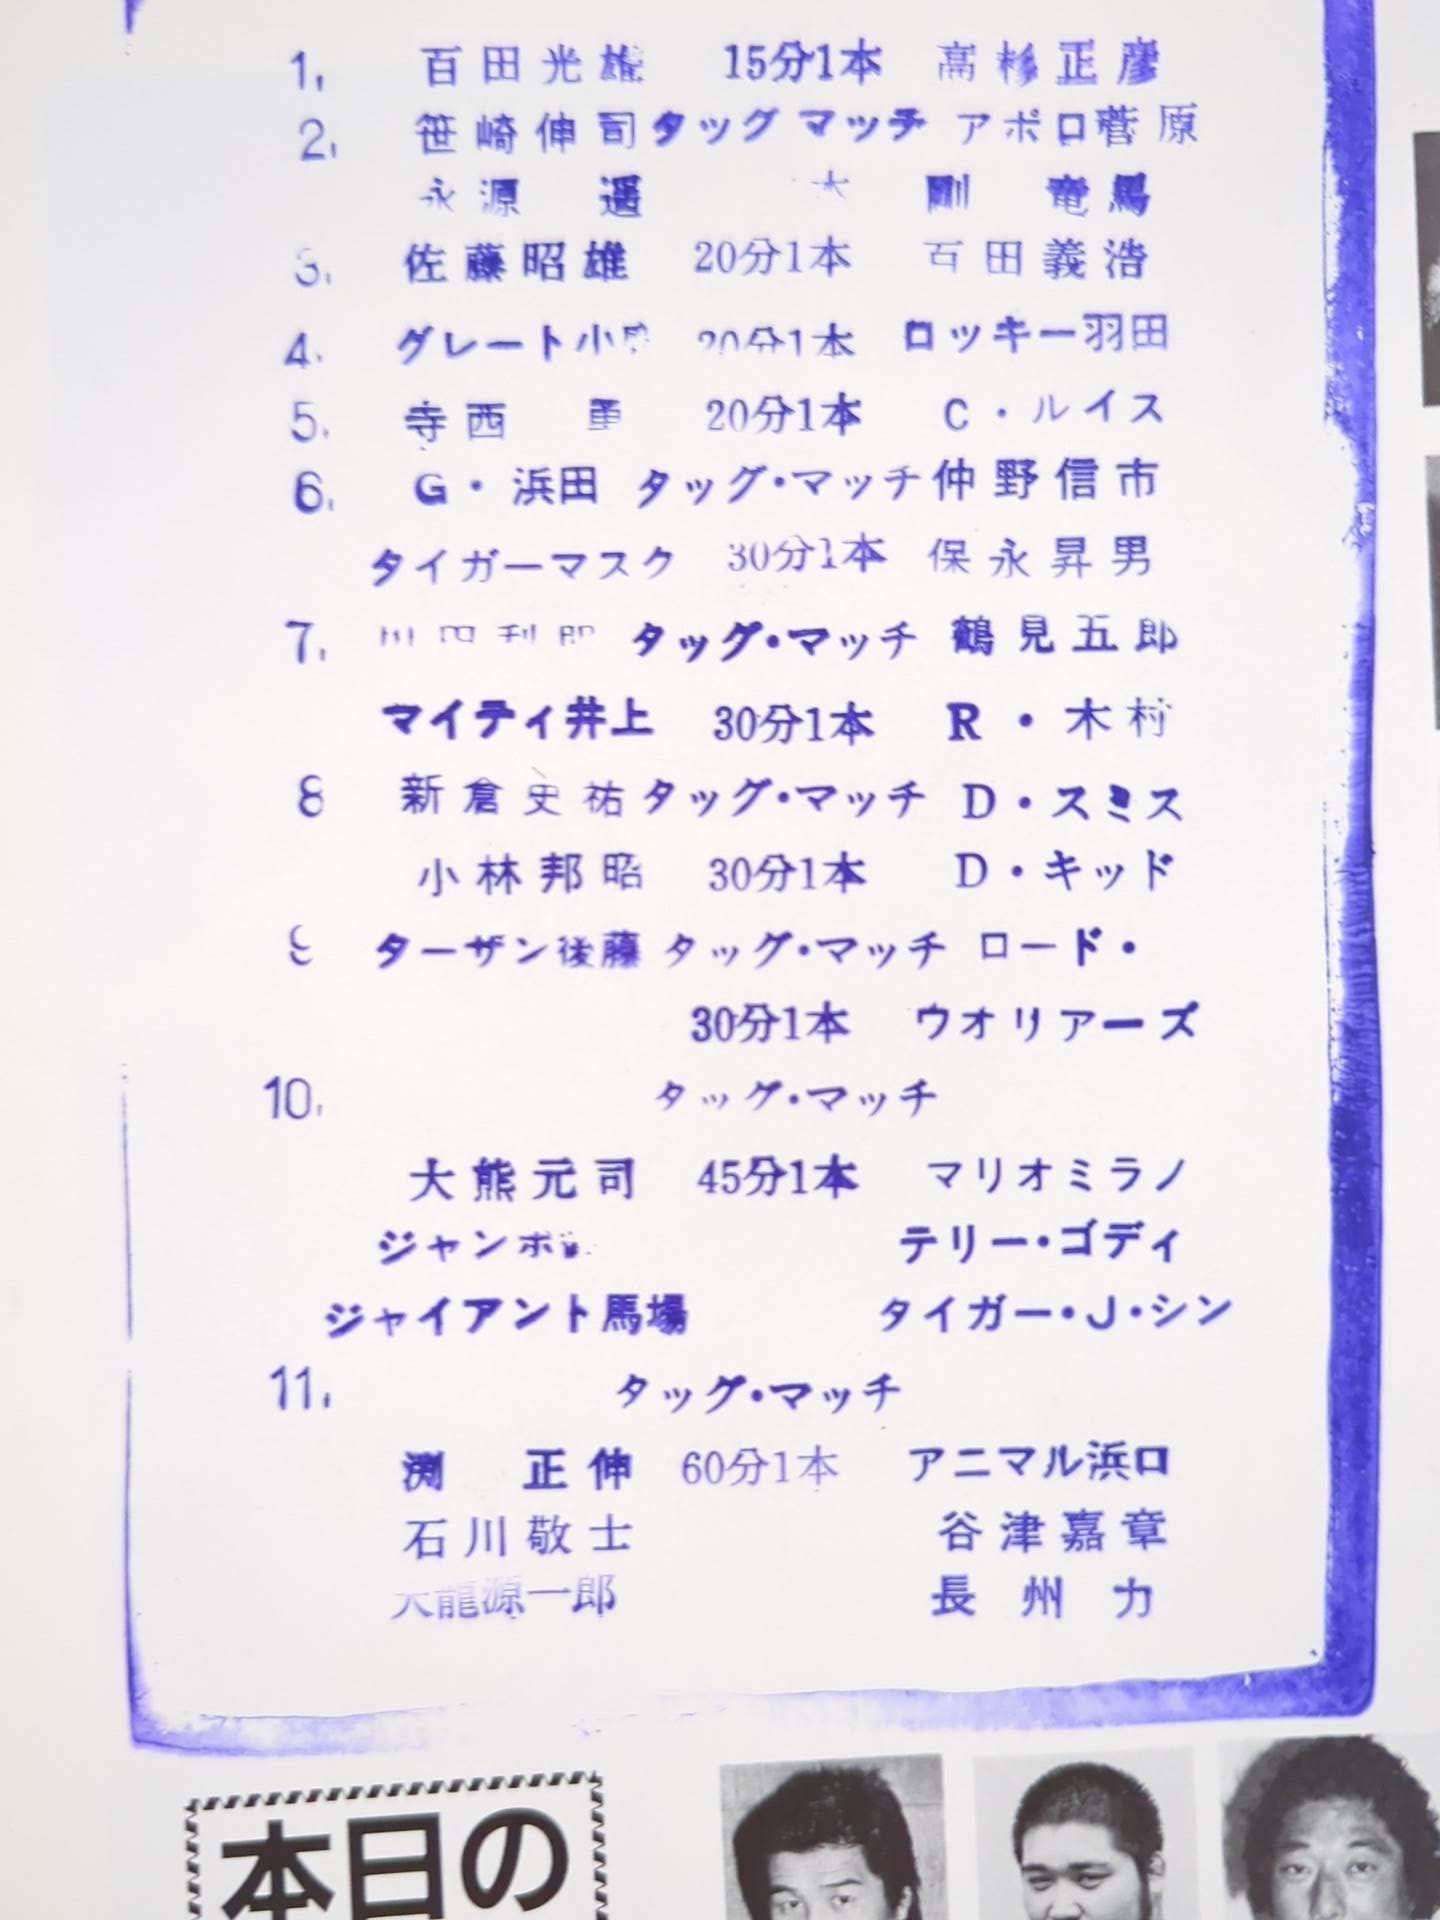 1. 百田光雄 15分1本 高杉正彦
2. 笹崎伸司 タッグマッチ アポロ菅原
永源遥 大剛竜馬
3. 佐藤昭雄 20分1本 百田義浩
4. グレート小 20分1本 ロッキー羽田
5. 寺西勇 20分1本 C・ルイス
6. G・浜田 タッグ・マッチ 仲野信市
タイガーマスク 30分1本 保永昇男
7. タッグ・マッチ 鶴見五郎
マイティ井上 30分1本 R・木村
8 新倉史祐 タッグ・マッチ D・スミス
小林邦昭 30分1本 D・キッド
9 ターザン後藤 タッグ・マッチ ロード・
30分1本 ウオリアーズ
10. タッグ・マッチ
大熊元司 45分1本 マリオミラノ
ジャンボ テリー・ゴディ
ジャイアント馬場 タイガー・J・シン
11. タッグ・マッチ
渕正伸 60分1本 アニマル浜口
石川敬士 谷津嘉章
天龍源一郎 長州力
本日の